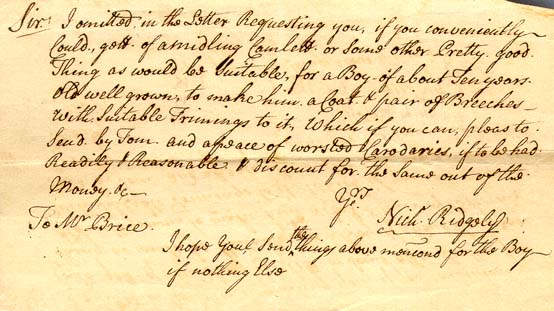 Sir: I omitted, in the Letter Requesting you, if you conveniently
Could, gett of a midling Camlett or Some other Pretty Good
Thing as would be Suitable, for a Boy of about Ten years
Old well grown, to make him a Coat & pair of Breeches
with Suitable Trimings to it, Which if you can, pleas to
Send by Tom and a peace of worsted Carodaries, if to be had
Readily & Reasonable & discount for the Same out of the
Money &c
Yrs
To Mr Brice.
Nich: Ridgely
I hope Youl Send the things above mencond for the Boy
if nothing Else